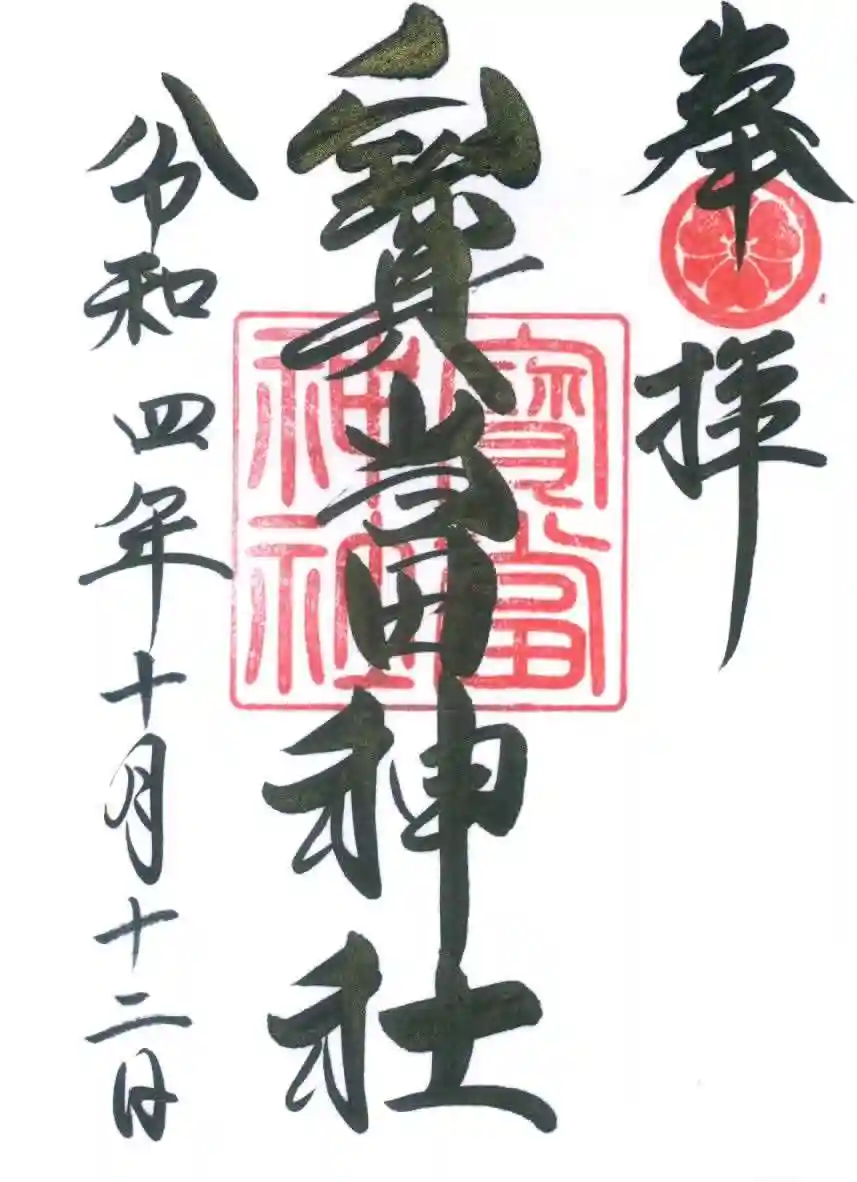 奉拝
寶當神社
寶當
神社
令和四年十月十二日